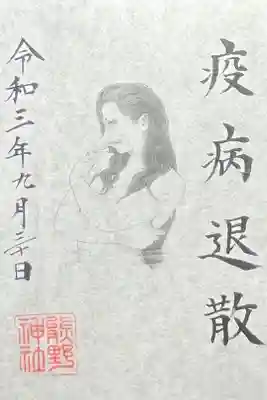 疫病退散
令和三年九月三十日
熊野
神社